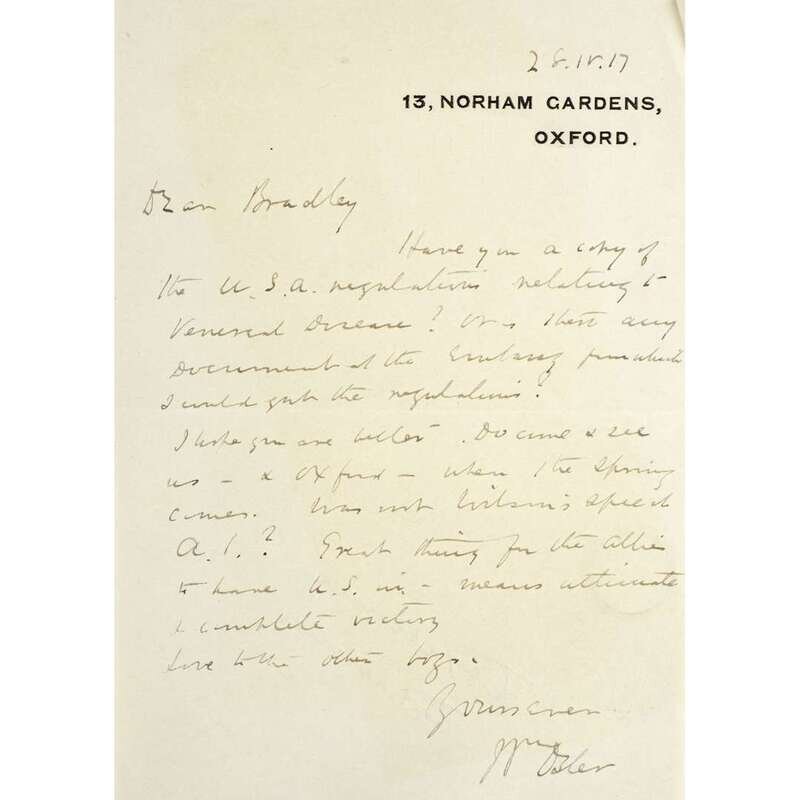 28.IV.17
13, NORHAM GARDENS,
OXFORD.
Dear Bradley
Have you a copy of
the U.S.A. regulations relating to
Venereal Disease? Or is there any
Document at the Embassy from which
I could get the regulations?
I hope you are better. Do come & see
us – & Oxford – when the Spring
comes. Was not Wilson's speech
A.1.? Great thing for the Allies
to have U.S. in – means ultimate
& complete victory
Love to the other boys.
Yours ever
Wm Osler